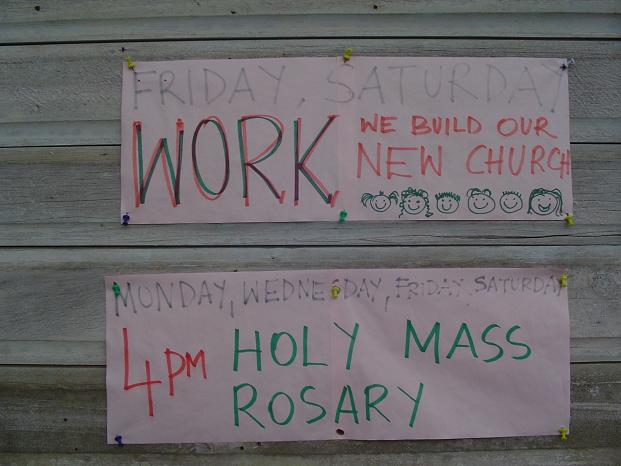 FRIDAY, SATURDAY
WORK
WE BUILD OUR
NEW CHURCH
MONDAY, WEDNESDAY, FRIDAY, SATURDAY
4 PM HOLY MASS
ROSARY